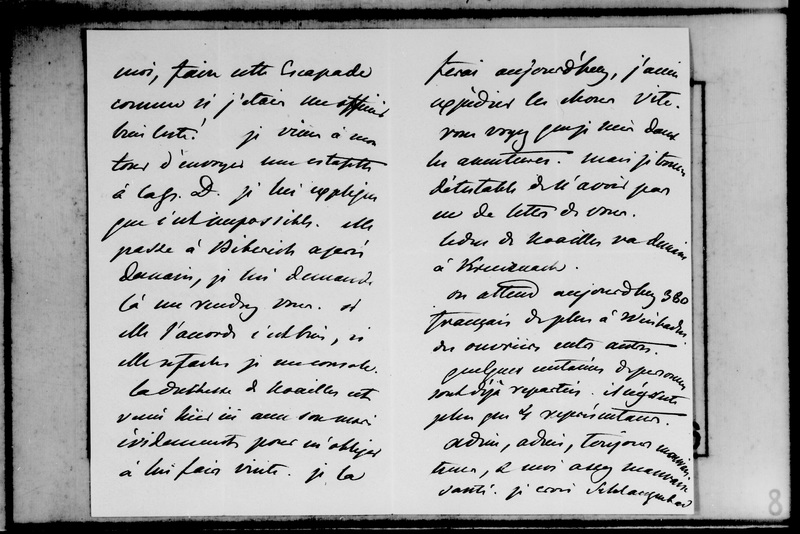 moi, faire cette Escapade
comme si j'étais un
bien lesté! je viens à mon
tour d'envoyer une estafette
à Cags. D. je lui explique
que c'est impossible. elle
passe à Biberich après
Demain, je lui demande
là un rendez vous. si
elle l'accorde c'est bien, si
elle se fache je me console.
la duchesse de Noailles est
venue hier ici avec son mari
évidemment pour m'obliger
à lui faire visite. je la
ferai aujourd'huy, j'aime
expédier les choses vite.
vous voyez que je suis dans
les aventures. mais je trouve
détestable de n'avoir pas
eu de lettre de vous.
le duc de Noailles va demain
à Kreuznach.
on attend aujourd'huy 380
français de plus à Wiesbaden
des ouvriers entre autres.
quelques centaines de personnes
sont déjà reparties. il n'y reste
plus que 4 représentans.
adieu, adieu, toujours mauvais
tems, & moi assez mauvaise
santé. je crois Schlangenbad
8